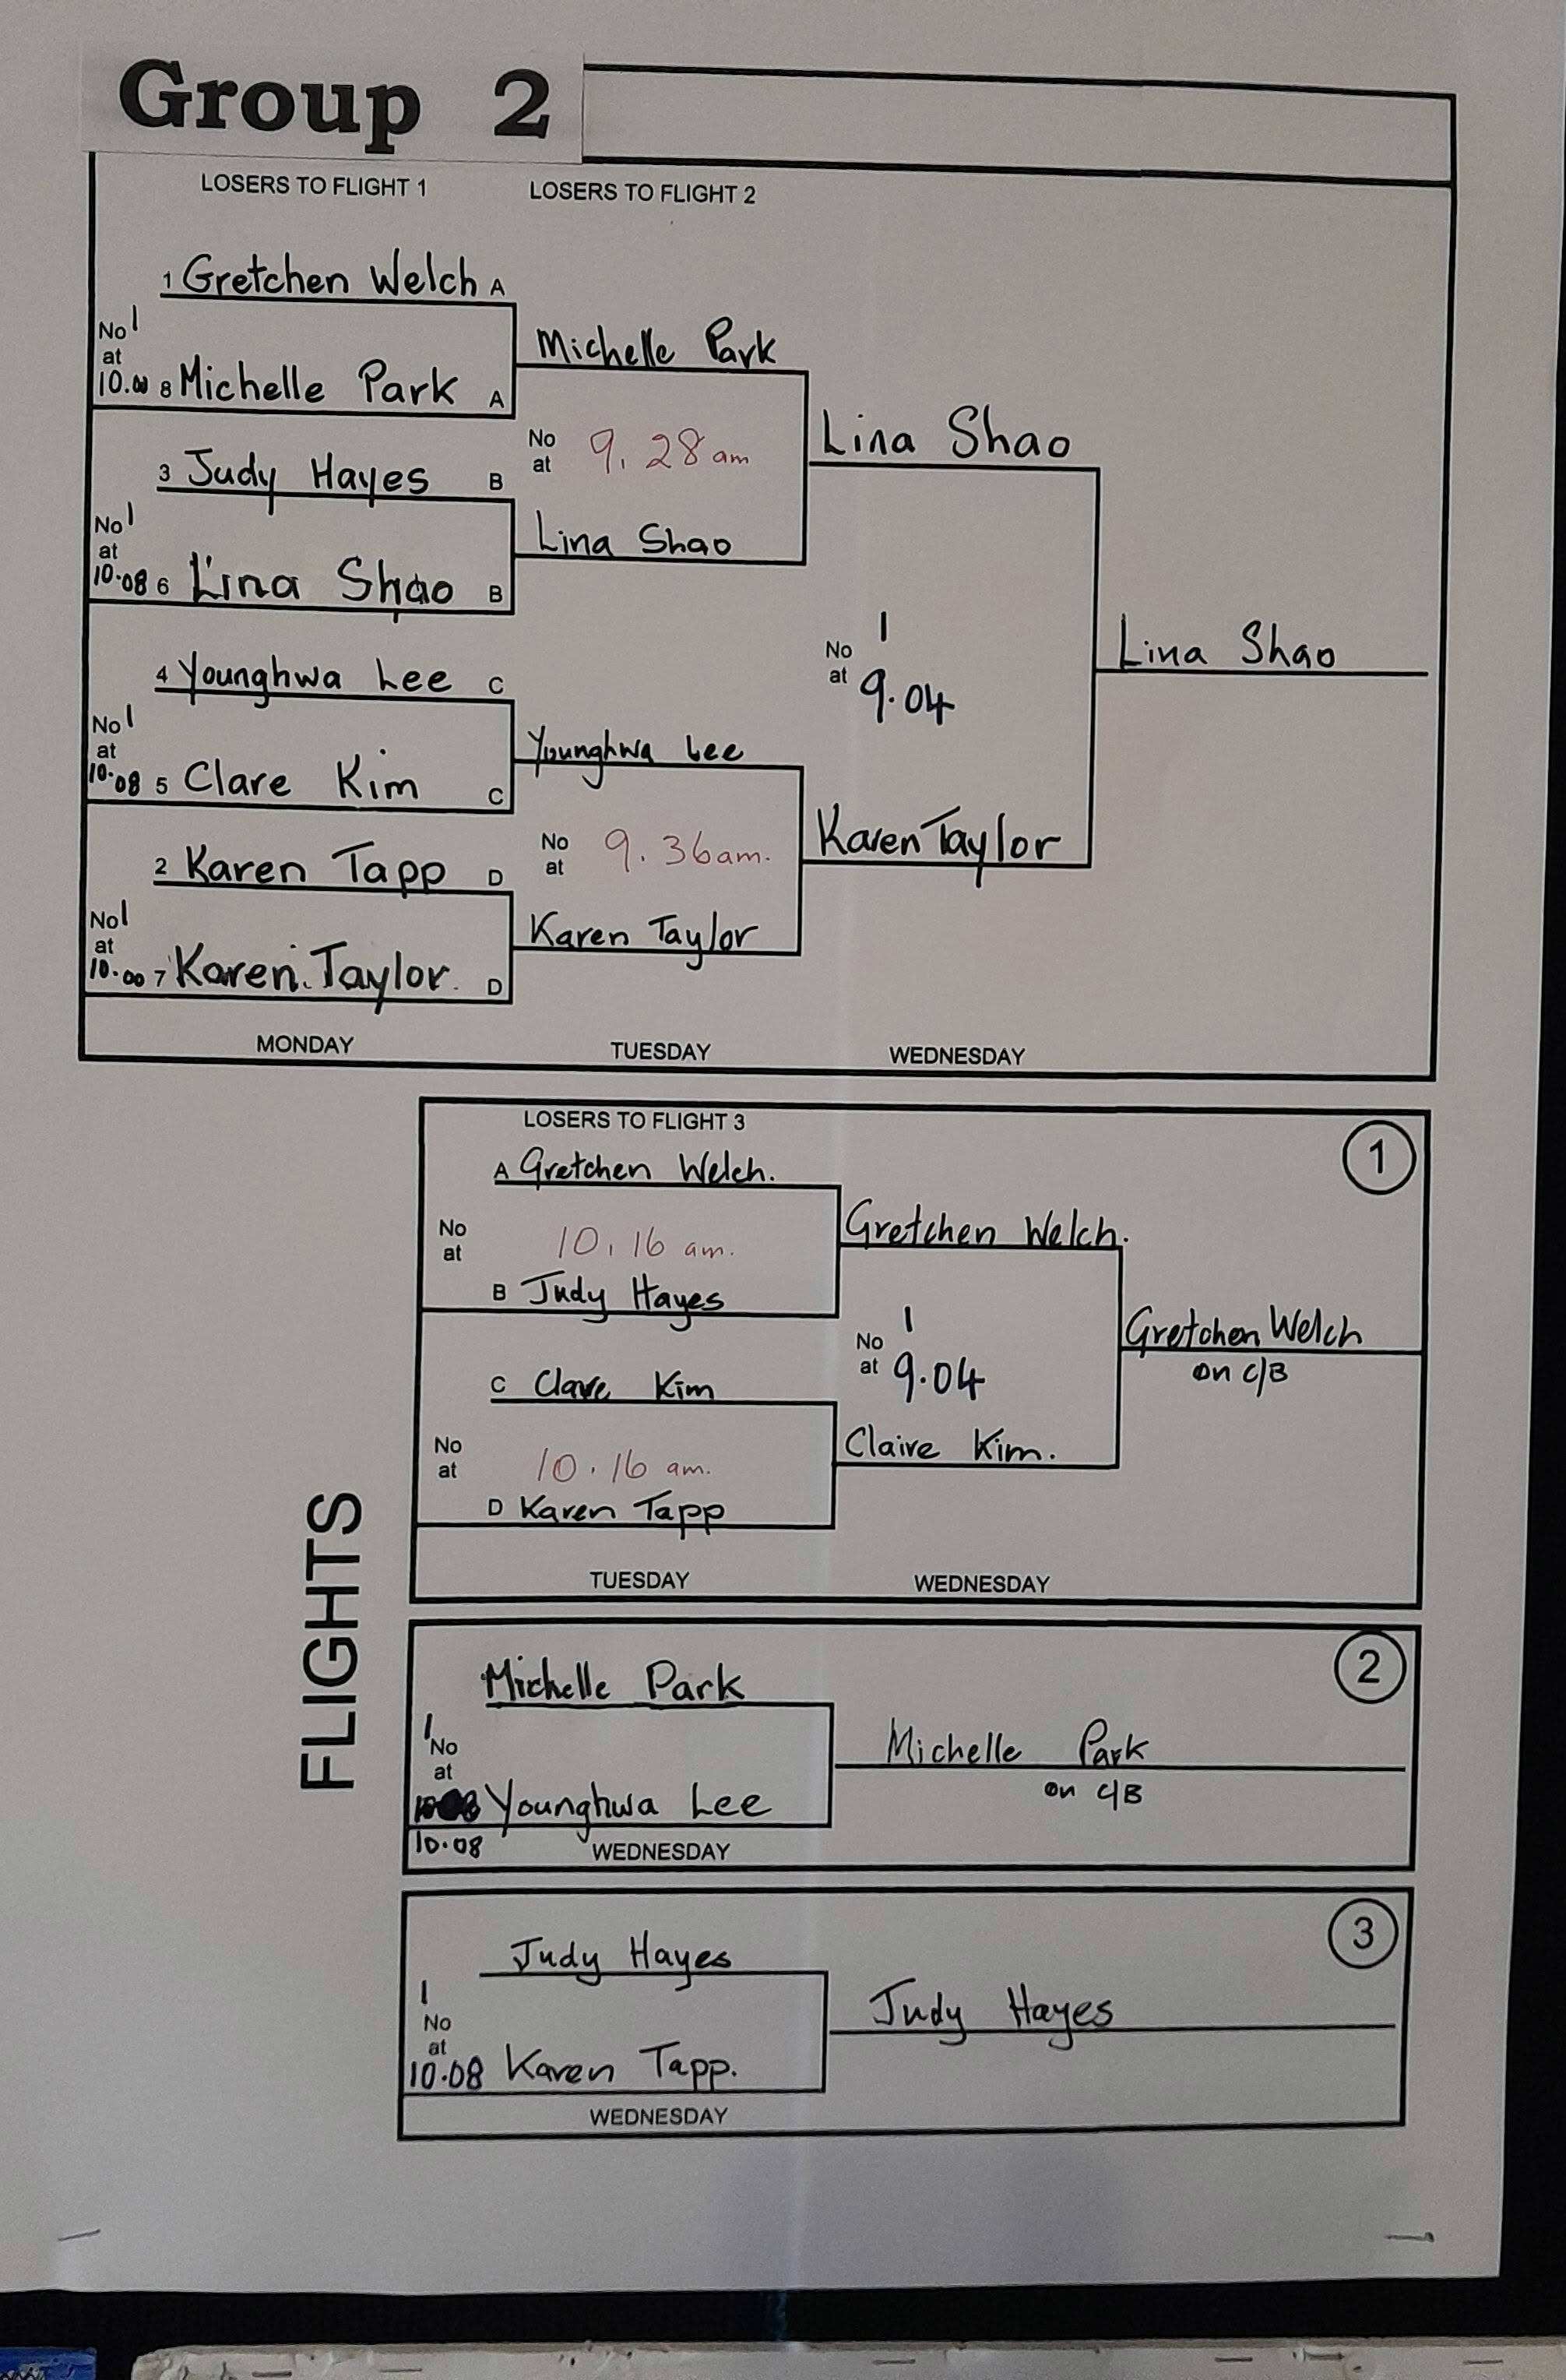 Group 2
LOSERS TO FLIGHT 1
LOSERS TO FLIGHT 2
1 Gretchen Welch A
No 1
at
10.00 8 Michelle Park A
Michelle Park
3 Judy Hayes B
No 1
at
10.08 6 Lina Shao B
No
at 9.28 am
Lina Shao
Lina Shao
4 Younghwa Lee C
No 1
at
10.08 5 Clare Kim C
Younghwa Lee
2 Karen Tapp D
No 1
at
10.00 7 Karen Taylor D
No
at 9.36am.
Karen Taylor
Karen Taylor
1
No
at 9.04
Lina Shao
MONDAY
TUESDAY
WEDNESDAY
FLIGHTS
LOSERS TO FLIGHT 3
1
A Gretchen Welch.
No
at 10.16 am.
B Judy Hayes
Gretchen Welch.
C Clare Kim
No
at 10.16 am.
D Karen Tapp
Claire Kim.
1
No
at 9.04
Gretchen Welch
on C/B
TUESDAY
WEDNESDAY
2
Michelle Park
1
No
at
Younghwa Lee
10.08
WEDNESDAY
Michelle Park
on C/B
3
Judy Hayes
1
No
at
10.08 Karen Tapp.
WEDNESDAY
Judy Hayes